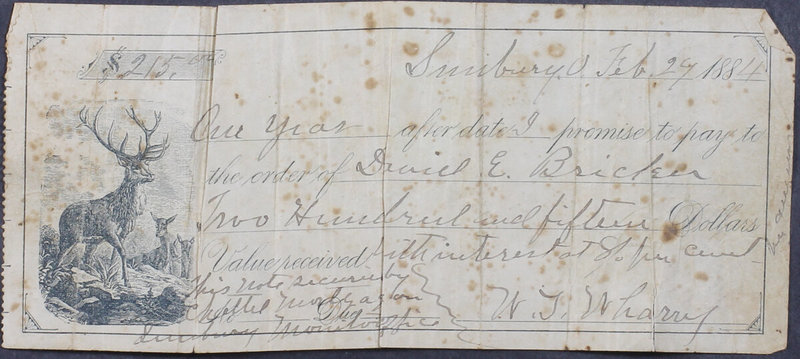 $215.00
Sunbury, O. Feb. 29 1884
One Year after date I promise to pay to
the order of Daniel E. Bricker
Two Hundred and fifteen Dollars
Value received with interest at 8 per cent
This Note secured by
Chattel Mortgage on
No. Due
Sunbury office
W. T. Wharry